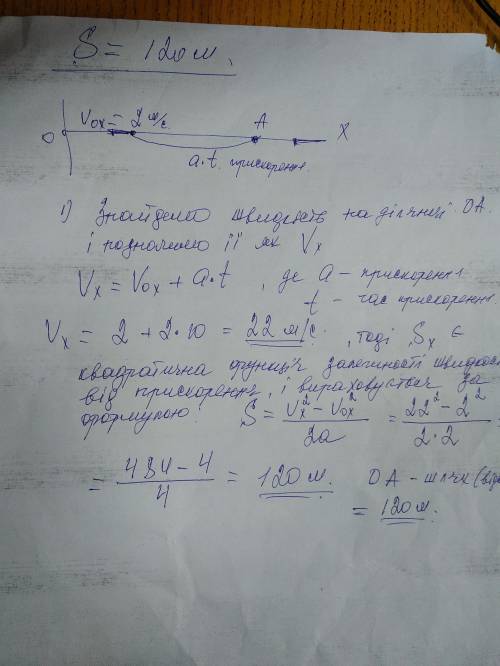 S = 120 м.
Vox = 2 м/с. A
O X
a·t прискорення
1) Знайдемо швидкість на ділянці OA
і позначимо її як Vx
Vx = Vox + a·t , де a – прискорення
t – час прискорення.
Vx = 2 + 2·10 = 22 м/с. , тоді Sx є
квадратична функція залежності
від прискорення, і вираховується за
формулою: S = (Vx² – Vox²)/2a = (22² – 2²)/(2·2)
= (484 – 4)/4 = 120 м. OA – шлях
= 120 м.